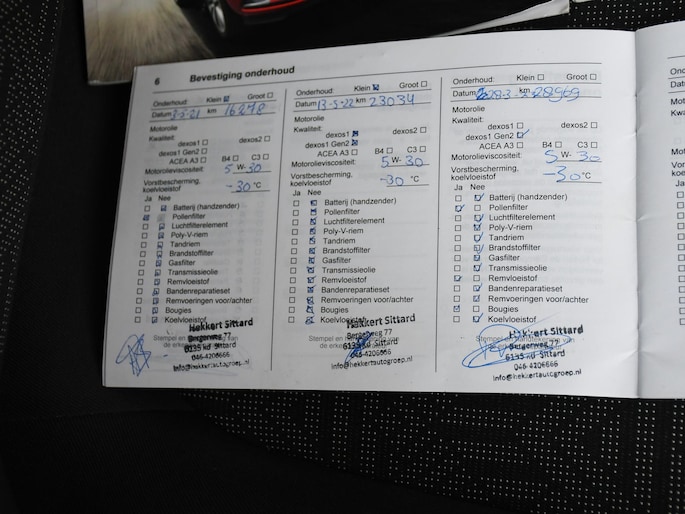 6 Bevestiging onderhoud
Onderhoud: Klein Groot
Datum 3-5-21 km 16278
Motorolie
Kwaliteit:
dexos1 dexos2
dexos1 Gen2
ACEA A3 B4 C3
Motorolieviscositeit: 5 W-30
Vorstbescherming,
koelvloeistof -30 °C
Ja Nee
Batterij (handzender)
Pollenfilter
Luchtfilterelement
Poly-V-riem
Tandriem
Brandstoffilter
Gasfilter
Transmissieolie
Remvloeistof
Bandenreparatieset
Remvoeringen voor/achter
Bougies
Koelvloeistof
Hekkert Sittard
Bergerweg 77
6135 kd Sittard
046-4206666
info@hekkertautogroep.nl
Onderhoud: Klein Groot
Datum 13-5-22 km 23034
Motorolie
Kwaliteit:
dexos1 dexos2
dexos1 Gen2
ACEA A3 B4 C3
Motorolieviscositeit: 5 W-30
Vorstbescherming,
koelvloeistof -30 °C
Ja Nee
Batterij (handzender)
Pollenfilter
Luchtfilterelement
Poly-V-riem
Tandriem
Brandstoffilter
Gasfilter
Transmissieolie
Remvloeistof
Bandenreparatieset
Remvoeringen voor/achter
Bougies
Koelvloeistof
Hekkert Sittard
Bergerweg 77
6135 kd Sittard
046-4206666
info@hekkertautogroep.nl
Onderhoud: Klein Groot
Datum km 28969
Motorolie
Kwaliteit:
dexos1 dexos2
dexos1 Gen2
ACEA A3 B4 C3
Motorolieviscositeit: 5 W-30
Vorstbescherming,
koelvloeistof -30 °C
Ja Nee
Batterij (handzender)
Pollenfilter
Luchtfilterelement
Poly-V-riem
Tandriem
Brandstoffilter
Gasfilter
Transmissieolie
Remvloeistof
Bandenreparatieset
Remvoeringen voor/achter
Bougies
Koelvloeistof
Hekkert Sittard
Bergerweg 77
6135 kd Sittard
046-4206666
info@hekkertautogroep.nl